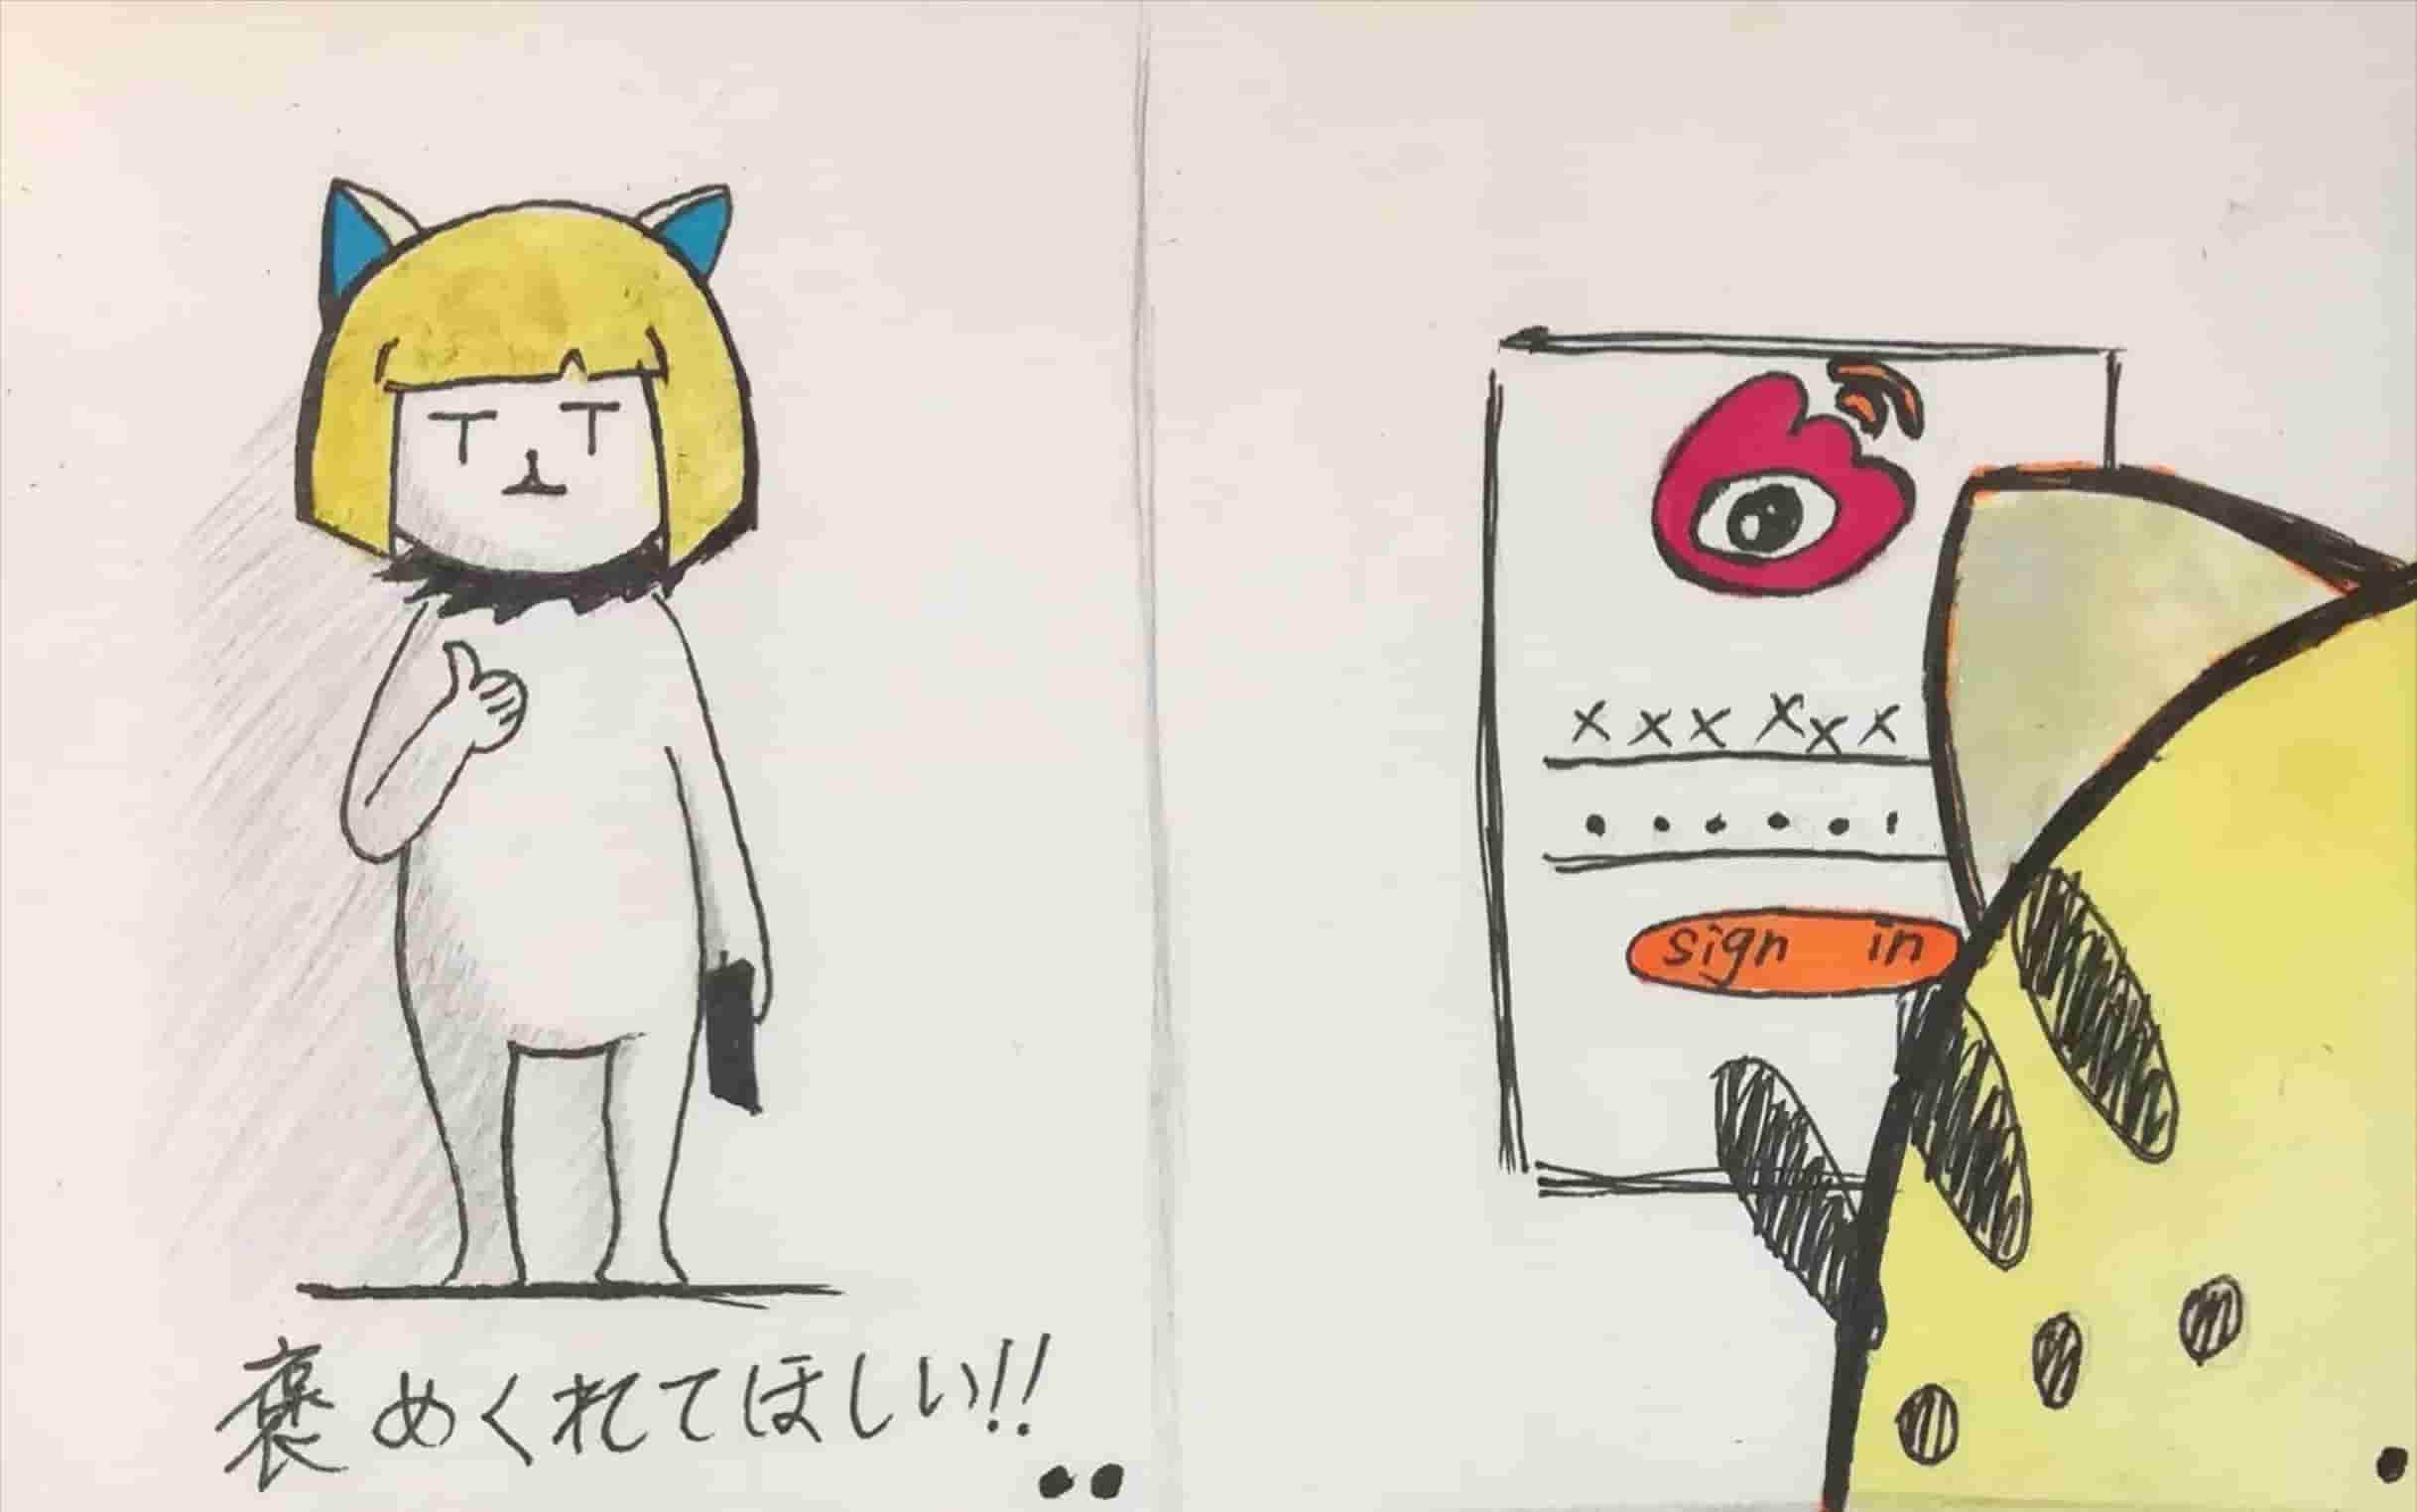 褒めくれてほしい!!
xxxxxx
sign in